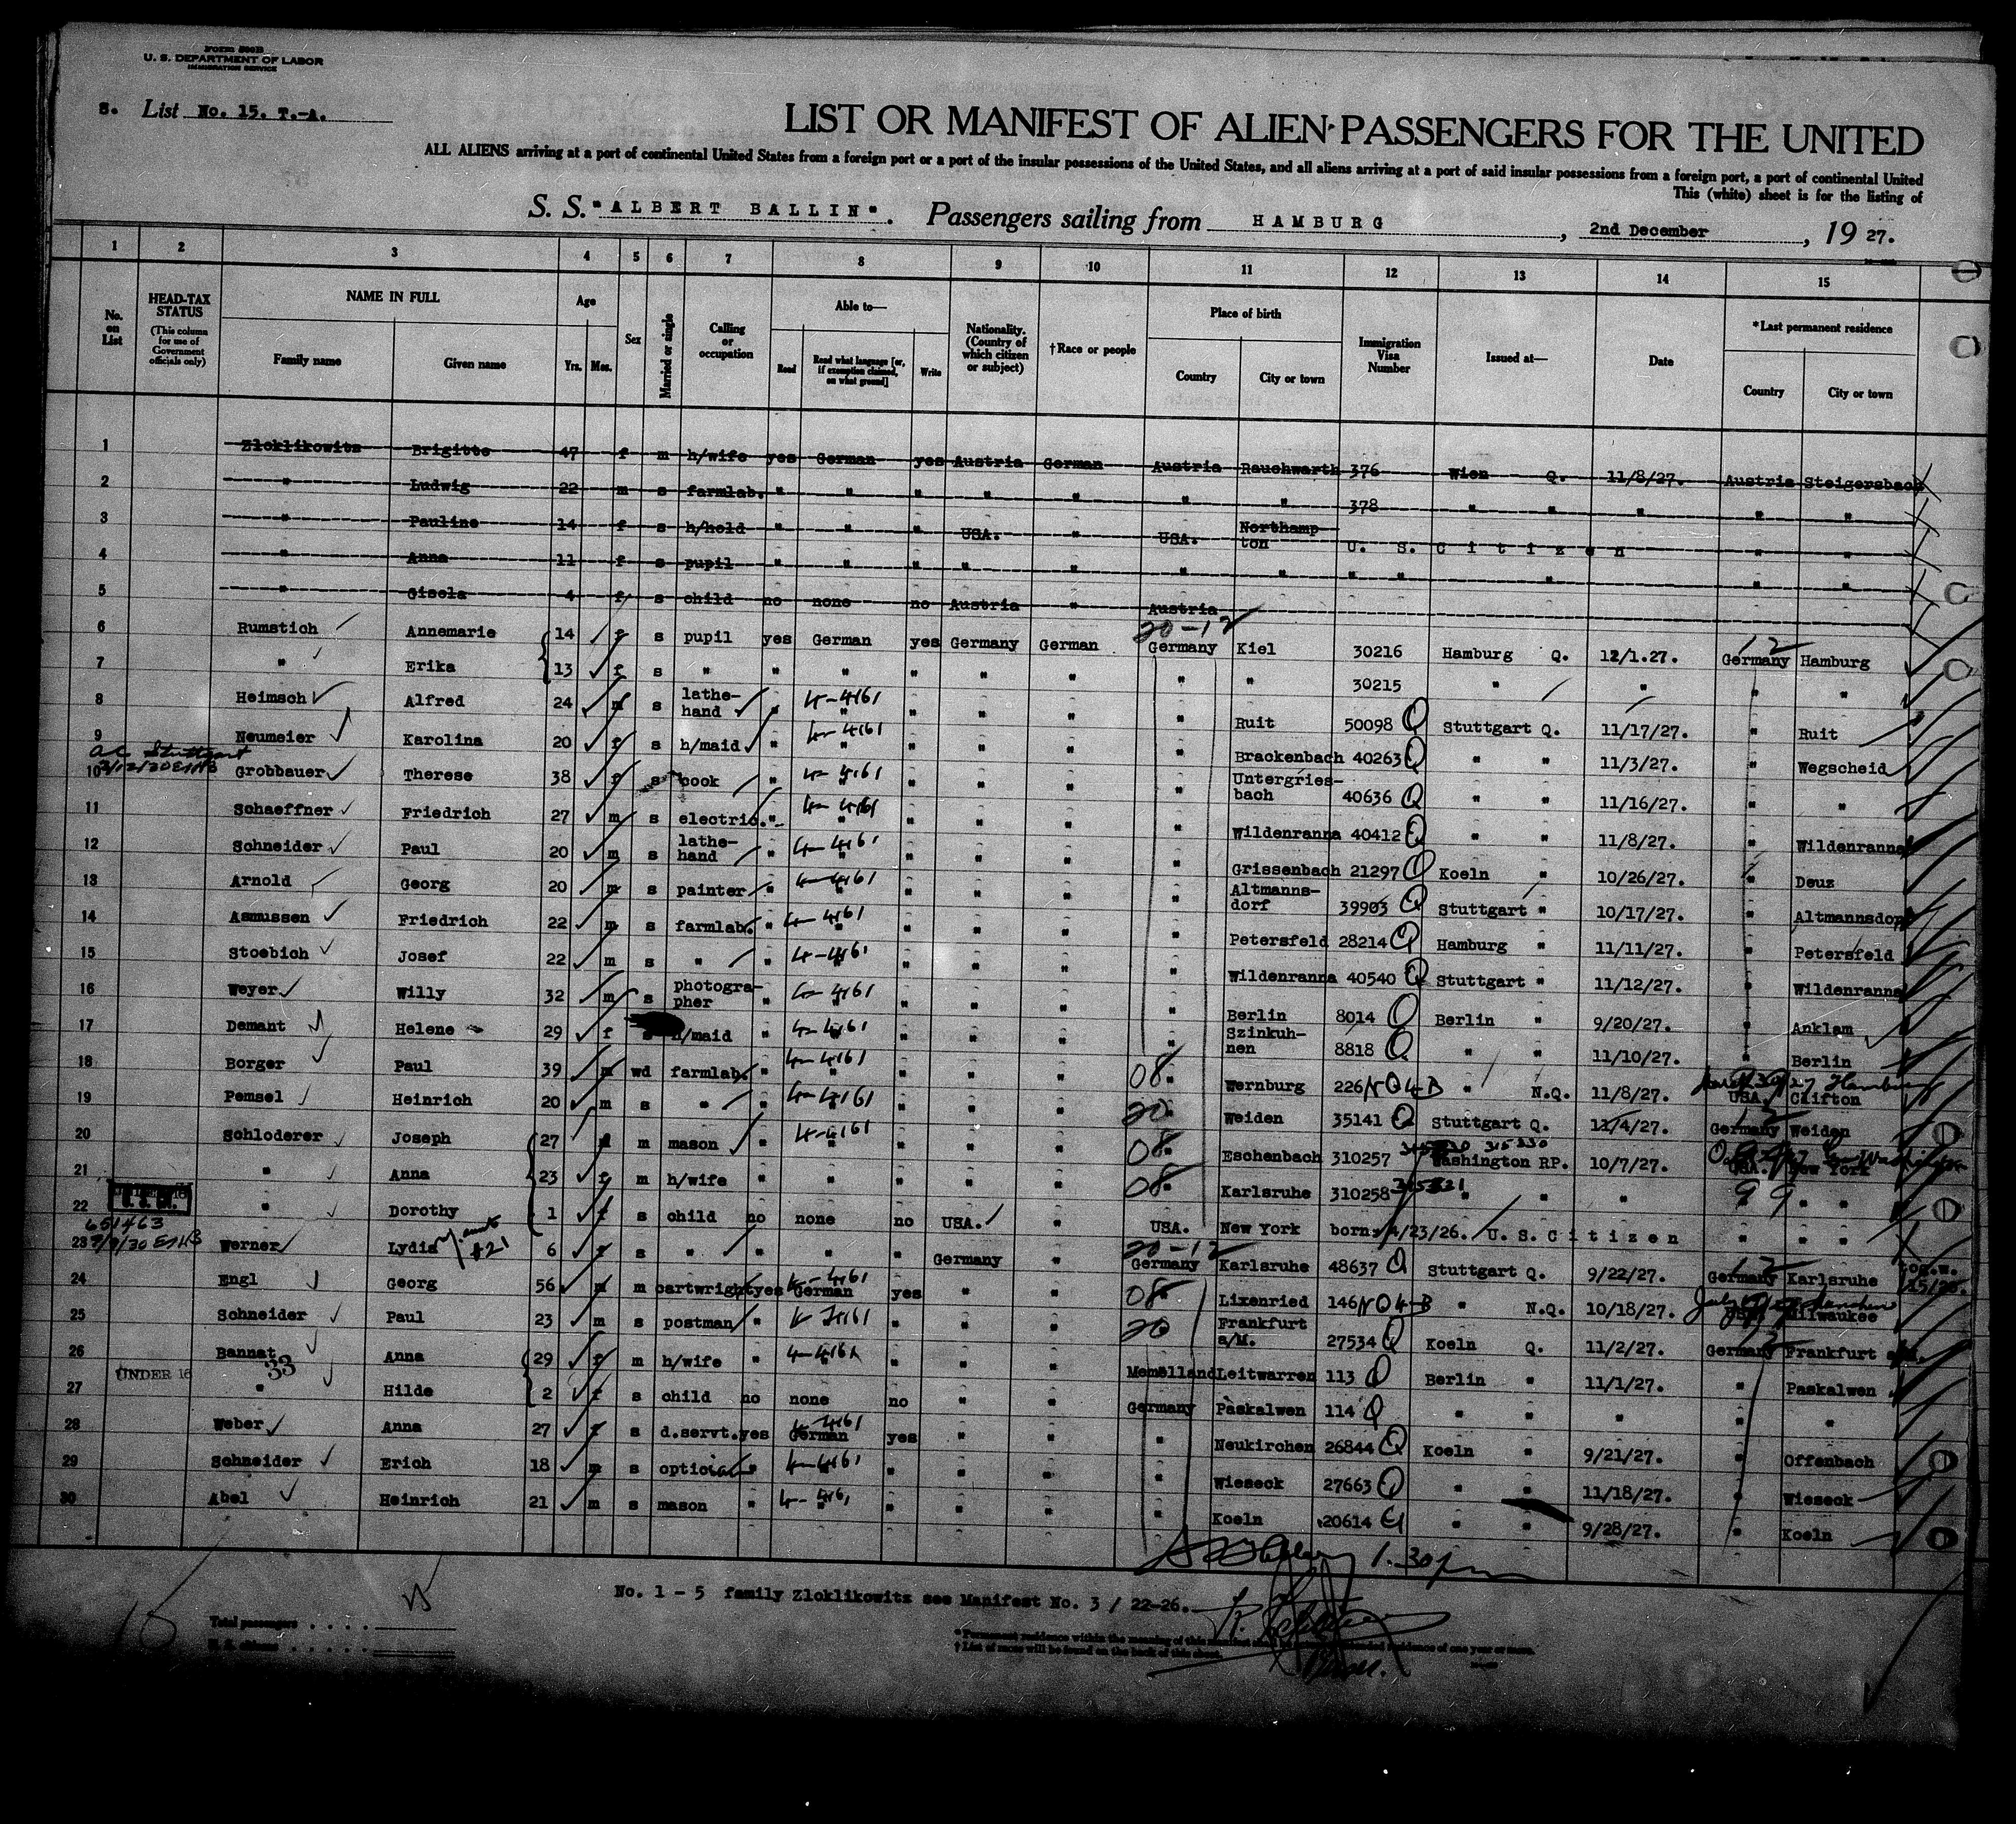 Form 500B
U. S. DEPARTMENT OF LABOR
IMMIGRATION SERVICE
S. List No. 15. T.-A.
LIST OR MANIFEST OF ALIEN PASSENGERS FOR THE UNITED
ALL ALIENS arriving at a port of continental United States from a foreign port or a port of the insular possessions of the United States, and all aliens arriving at a port of said insular possessions from a foreign port, a port of continental United
This (white) sheet is for the listing of
S. S. "ALBERT BALLIN". Passengers sailing from HAMBURG, 2nd December, 1927.
1 2 3 4 5 6 7 8 9 10 11 12 13 14 15
No. on List
HEAD-TAX STATUS
(This column for use of Government officials only)
NAME IN FULL
Family name Given name
Age
Yrs. Mos.
Sex
Married or single
Calling or occupation
Able to—
Read Read what language [or, if exemption claimed, on what ground] Write
Nationality. (Country of which citizen or subject)
†Race or people
Place of birth
Country City or town
Immigration Visa Number
Issued at—
Date
*Last permanent residence
Country City or town
1 Zloklikowitz Brigitte 47 f m h/wife yes German yes Austria German Austria Rauchwarth 376 Wien Q. 11/8/27. Austria Steigersbach
2 " Ludwig 22 m s farmlab. " " " " " " " 378 " " " " "
3 " Pauline 14 f s h/hold " " " USA. " USA. Northampton U. S. Citizen " "
4 " Anna 11 f s pupil " " " " " " " " " " " "
5 " Gisela 4 f s child no none no Austria " Austria
20-12 12
6 Rumstich Annemarie 14 f s pupil yes German yes Germany German Germany Kiel 30216 Hamburg Q. 12/1.27. Germany Hamburg
7 " Erika 13 f s " " " " " " " " 30215 " " " "
8 Heimsch Alfred 24 m s lathe-hand " 4-4161 " " " " " Ruit 50098 Q Stuttgart Q. 11/17/27. " Ruit
9 Neumeier Karolina 20 f s h/maid " 4-4161 " " " " " Brackenbach 40263 Q " " 11/3/27. " Wegscheid
10 Grobbauer Therese 38 f s cook " 4-4161 " " " " " Untergriesbach 40636 Q " " 11/16/27. " "
11 Schaeffner Friedrich 27 m s electric. " 4-4161 " " " " " Wildenranna 40412 Q " " 11/8/27. " Wildenranna
12 Schneider Paul 20 m s lathe-hand " 4-4161 " " " " " Grissenbach 21297 Q Koeln " 10/26/27. " Deuz
13 Arnold Georg 20 m s painter " 4-4161 " " " " " Altmannsdorf 39903 Q Stuttgart " 10/17/27. " Altmannsdorf
14 Asmussen Friedrich 22 m s farmlab. " 4-4161 " " " " " Petersfeld 28214 Q Hamburg " 11/11/27. " Petersfeld
15 Stoebich Josef 22 m s " " 4-4161 " " " " " Wildenranna 40540 Q Stuttgart " 11/12/27. " Wildenranna
16 Weyer Willy 32 m s photographer " 4-4161 " " " " " Berlin 8014 Q Berlin " 9/20/27. " Anklam
17 Demant Helene 29 f s h/maid " 4-4161 " " " " " Szinkuhnen 8818 Q " " 11/10/27. " Berlin
18 Borger Paul 39 m wd farmlab. " 4-4161 " " " " 08 " Wernburg 226 NQ4-B " N.Q. 11/8/27. USA. Clifton
19 Pemsel Heinrich 20 m s " " 4-4161 " " " " 20 " Weiden 35141 Q Stuttgart Q. 11/4/27. Germany Weiden
20 Schloderer Joseph 27 m mason " 4-4161 " " " " 08 " Eschenbach 310257 Washington RP. 10/7/27. USA. New York
21 " Anna 23 f m h/wife " " " " " 08 " Karlsruhe 310258 " " " " "
22 " Dorothy 1 f s child no none no USA. " USA. New York born: 4/23/26. U.S. Citizen " "
651463
23 Werner Lydia #21 6 f s " " " " Germany " 20-12 Germany Karlsruhe 48637 Q Stuttgart Q. 9/22/27. Germany Karlsruhe
24 Engl Georg 56 m m cartwright yes 4-4161 German yes " " 08 " Lixenried 146 NQ4-B " N.Q. 10/18/27. USA. Milwaukee
25 Schneider Paul 23 m s postman " " " " 20 " Frankfurt a/M. 27534 Q Koeln Q. 11/2/27. Germany Frankfurt
26 Bannat Anna 29 f m h/wife " " " " Memelland Leitwarren 113 Q Berlin " 11/1/27. " Paskalwen
UNDER 16 33
27 " Hilde 2 f s child no none no " " Germany Paskalwen 114 Q " " " " "
28 Weber Anna 27 f s d.servt. yes 4-4161 German yes " " " Neukirchen 26844 Q Koeln " 9/21/27. " Offenbach
29 Schneider Erich 18 m s optician " 4-4161 " " " " " Wieseck 27663 Q " " 11/18/27. " Wieseck
30 Abel Heinrich 21 m s mason " 4-4161 " " " " " Koeln 20614 " " 9/28/27. " Koeln
1.30 pm
No. 1 - 5 family Zloklikowitz see Manifest No. 3 / 22-26.
Total passengers . . . .
U. S. citizens . . . . .
*Permanent residence within the meaning of this residence of one year or more.
† List of races will be found on the back of this sheet.